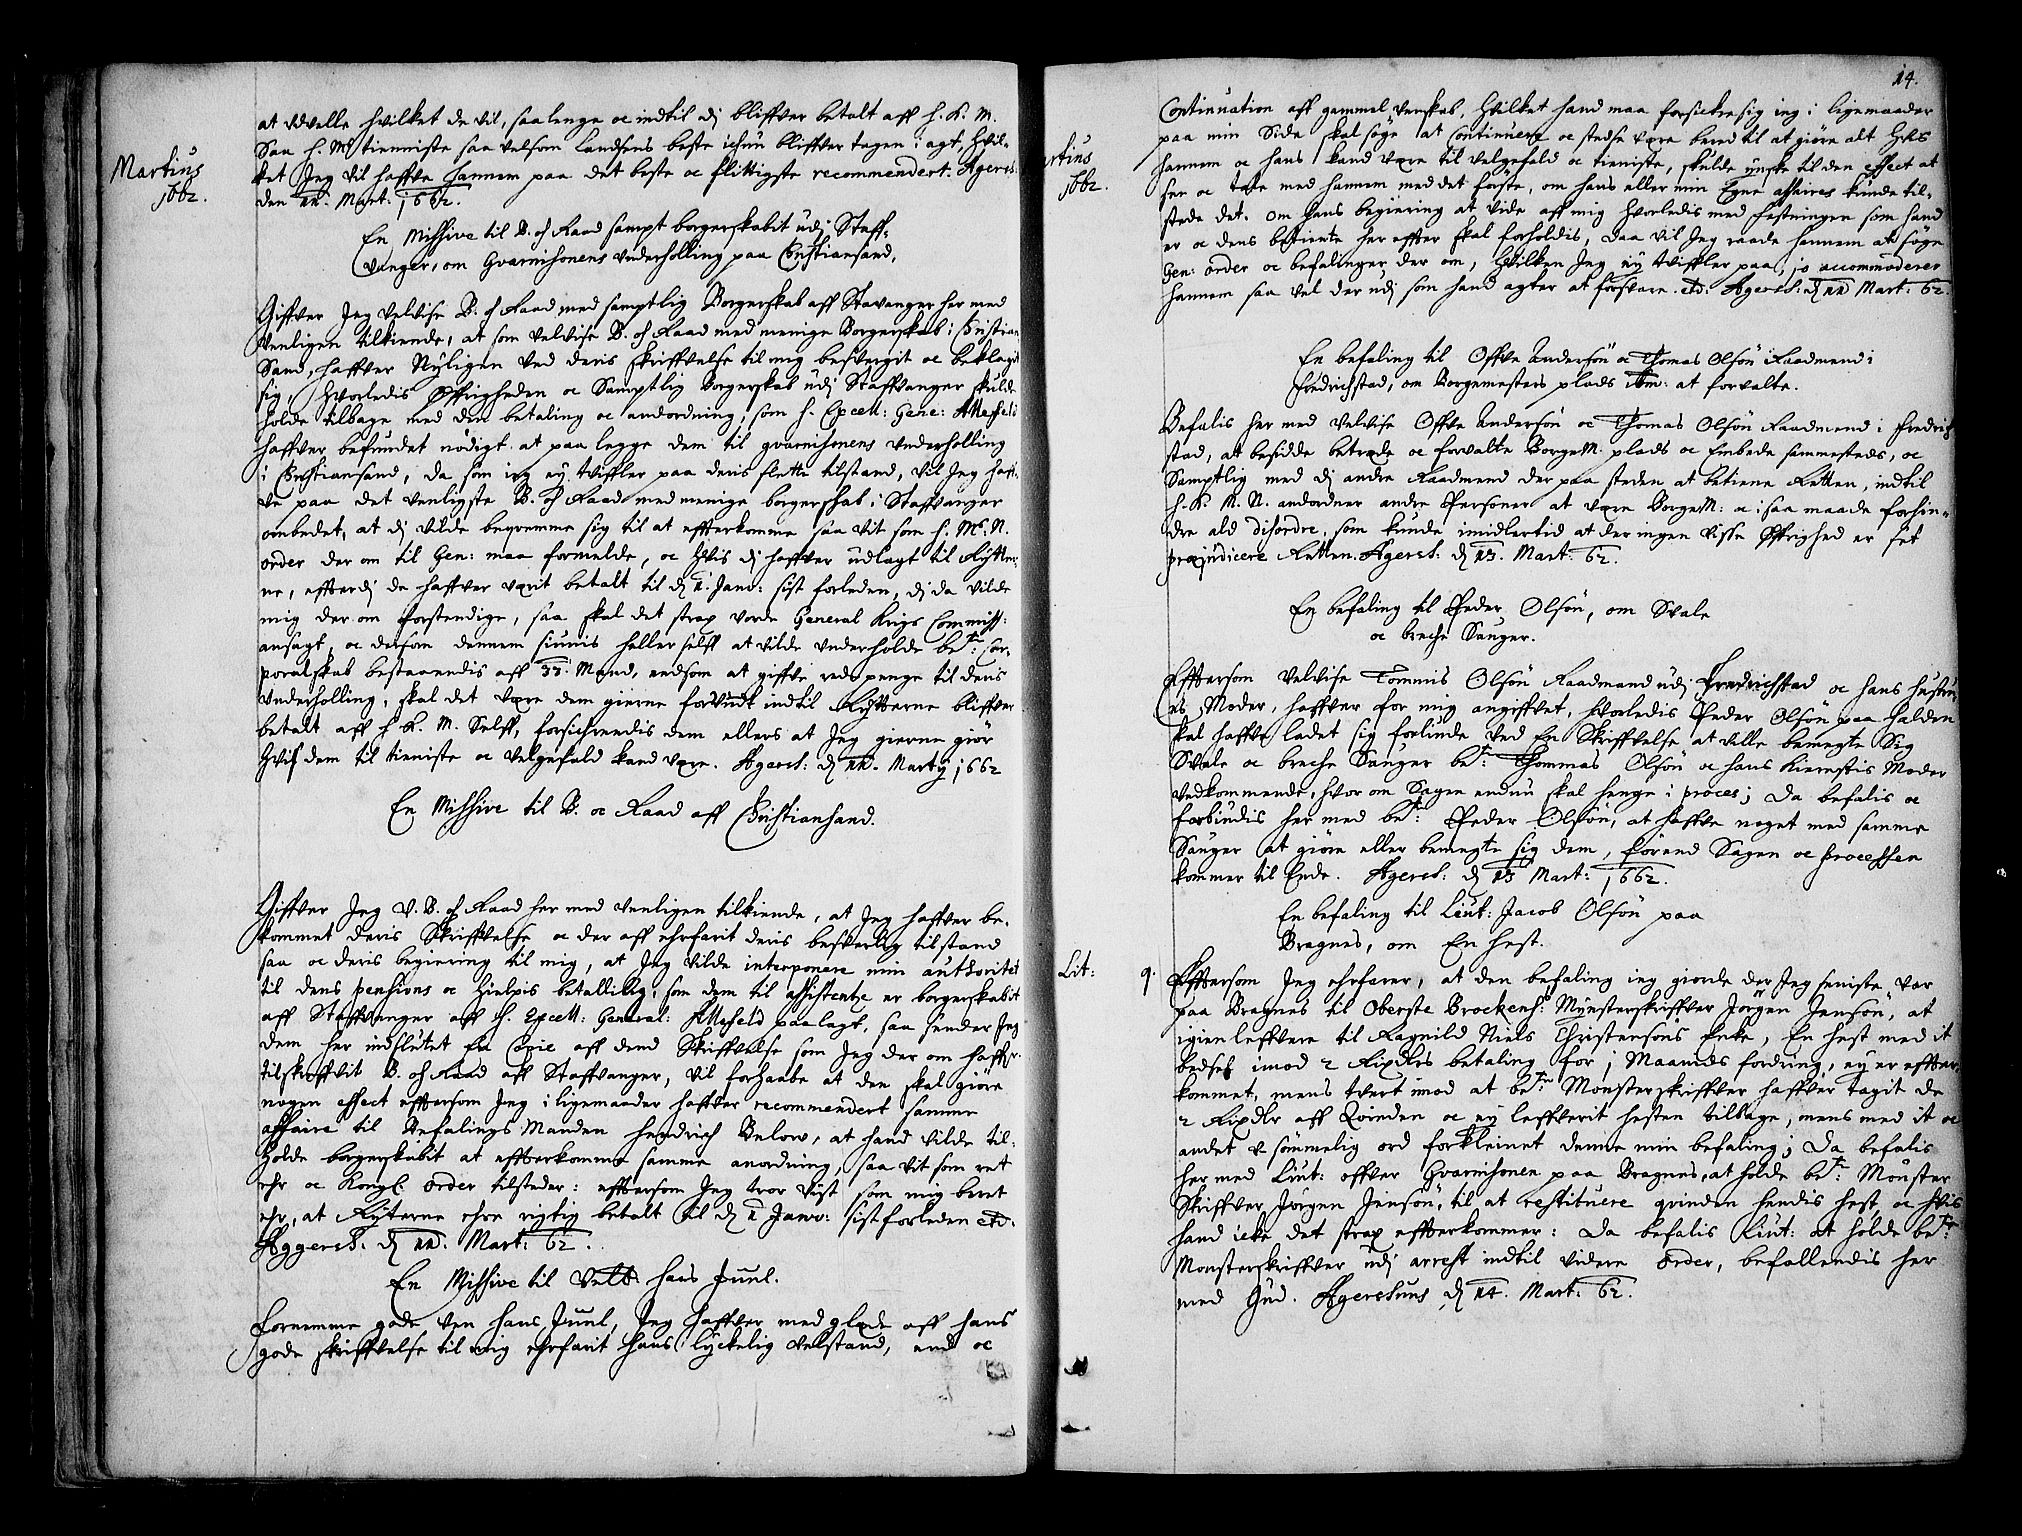 Martius
1662.
at udvelle hvilket de vil, saalenge oc indtil dj bliffver betalt aff h. K. M.
Saa h. Mts tienniste saa velsom Landsens beste ichun bliffver tagen i agt, hvil-
ket Jeg vil haffve hannem paa det beste oc flittigste recommendert. Agers:
den 11. Mart. 1662.
En Missive til B. oc Raad sampt borgerskabit udj Staff-
vanger, om Gvarnisonens underholling paa Christiansand.
Giffver Jeg velvise B. oc Raad med samptlig Borgerskab aff Stavanger her med
venligen tilkiende, at som velvise B. oc Raad med menige Borgerskab i Christian
Sand, haffver Nyligen ved deris skriffvelse til mig besvergit oc beklagit
sig, hvorledis Øffrigheden oc Samptlig borgerskab udj Staffvanger skulde
holde tilbage med den betaling oc andordning, som h. Excell: Gene:
haffver befundet nødigt at paa legge dem til gvarnisonens underholling
i Christiansand, da som ieg ey tviffler paa deris slette tilstand, vil Jeg haff-
ve paa det venligste B. oc Raad med menige borgerskab i Staffvanger
ombedet, at dj vilde beqvemme sig til at effterkomme saa vit som h. Ms. N.
order der om til Gen: maa formelde, oc hvis dj haffver udlagt til Rytter-
ne, efftterdj de haffver verit betalt til d 1. Janv: sist forleden, dj da vilde
mig der om forstendige, saa skal det strax vorde General Krigs Commiss:
ansagt, oc dersom dennem siunis heller selff at vilde underholde bete: cor-
poralskab bestaaendis aff 33. Mand, endsom at giffve reds penge til deris
underholling, skal det være dem gierne forundt indtil Rytterne bliffver
betalt aff h K. M. Selff, forsichrendis dem ellers at Jeg gierne giør
hvis dem til tienniste oc velgefald kand være. Agers: d 11. Martij 1662
En Missive til B. oc Raad aff Christiansand.
Giffver Jeg V. B. oc Raad her med venligen tilkiende, at Jeg haffver be-
kommet deris Skriffvelse oc der aff ehrfarit deris besverlig tilstand
saa oc deris begiering til mig, at Jeg vilde interponere min authoritet
til dens pensions oc hielpis betalling, som dem til assistentze er borgerskabit
aff Staffvanger aff h. Excell: General: paalagt, saa sender Jeg
dem her indslutet En Copie aff dend Skriffvelse som Jeg der om haffver
tilskriffvit B. oc Raad aff Staffvanger, vil forhaabe at den skal giøre
nogen effect efftersom Jeg i ligemaader haffver recommendert samme
affaire til Befalings Manden Hendrich Below, at hand vilde til-
holde borgerskabit at effterkomme samme anordning, saa vit som ret
ehr oc Kongl: order tilsteder: efftersom Jeg tror vist som mig beret
ehr, at Rytterne ehre rigtig betalt til d 1 Janv: sistforleden etc.
Aggersh. d 11. Mart: 62.
En Missive til Velb: Hans Juul.
Fornemme gode Ven Hans Juul, Jeg haffver med glede aff hans
gode skriffvelse til mig ehrfarit hans lyckelig velstand, end oc
14.
rtius
1662.
Continuation aff gammel venskab, hvilket hand maa forsickre sig ieg i ligemaader
paa min Side skal søge at Continuere oc stedse være bered til at giøre alt hvis
hannem oc hans kand være til velgefald oc tieniste, skulde ynske til den effect at
see oc tale med hannem med det første, om hans eller min Egne affaires kunde til-
stede det. om hans begiering at vide aff mig hvorledis med festningen som hand
er oc dens betiente her effter skal forholdis, daa vil Jeg raade hannem at søge
Gen: order oc befalinger der om, hvilken Jeg ey tviffler paa, jo accommoderer
hannem saa vel der udj som hand agter at forsvare. etc: Agersh: d 11 Mart: 62.
En befaling til Offve Andersøn oc Thomas Olsøn Raadmend i
Fredrichstad, om Borgemesters plads ibm: at forvalte.
Befalis her med velvise Offve Andersøn oc Thomas Olsøn Raadmend i Fredrich
stad, at besidde betrede oc forvalte BorgeM. plads oc Embede sammesteds, oc
Samptlig med dj andre Raadmend der paa steden at betiene Retten, indtil
h. K. M. N. andordner andre Personer at være BorgeM: oc i saa maade forhin-
dre ald disordre, som kunde imidlertid at der ingen visse Øffrighed er set
præjudicere Retten. Agersh: d 13. Mart: 62.
En befaling til Peder Olsøn, om Svale
oc breche Sauger.
Efftersom velvise Tommis Olsøn Raadmand udj Fredrichstad oc hans hustru
es Moder, haffver for mig angiffvet, hvorledis Peder Olsøn paa Halden
skal haffve ladet sig forlinde ved En Skriffvelse at ville bemegte Sig
Svale oc breche Sauger bete: Thommas Olsøn oc hans Kierestis Moder
vedkommende, hvor om Sagen endnu skal henge i proces; Da befalis oc
forbiudis her med bete: Peder Olsøn, at haffve noget med samme
Sauger at giøre eller bemegte sig dem, førend Sagen oc processen
kommer til Ende. Agersh: d 13 Mart: 1662.
En befaling til Leut: Jacob Olsøn paa
Bragnes, om En Hest.
Lit: 9. Efftersom Jeg ehrfarer, at den befaling ieg giorde der Jeg seniste var
paa Bragnes til Oberste Brockenh: Mynsterskriffver Jørgen Jensøn, at
igien leffvere til Ragnild Niels Christensøns Enke, En hest med it
bedsel imod 2 Rixdlrs betaling for j Maanits fordring, ey er effter-
kommet, mens tvert imod at bete: Monsterskriffver haffver tagit de
2 Rixdlr aff Qvinden oc ey leffverit hesten tilbage, mens med it oc
andet u sømmelig ord forkleinet denne min befaling; Da befalis
her med Liut: offver Gvarnisonen paa Bragnes, at holde bete: Mønster
Skriffver Jørgen Jensøn, til at restituere qvinden hendis hest, oc hvis
hand icke det strax effterkommer: Da befalis Liut: at holde bete:
Monsterskriffver udj arrest indtil videre order, befallendis her
med Gud. Agershuus d 14. Mart: 62.